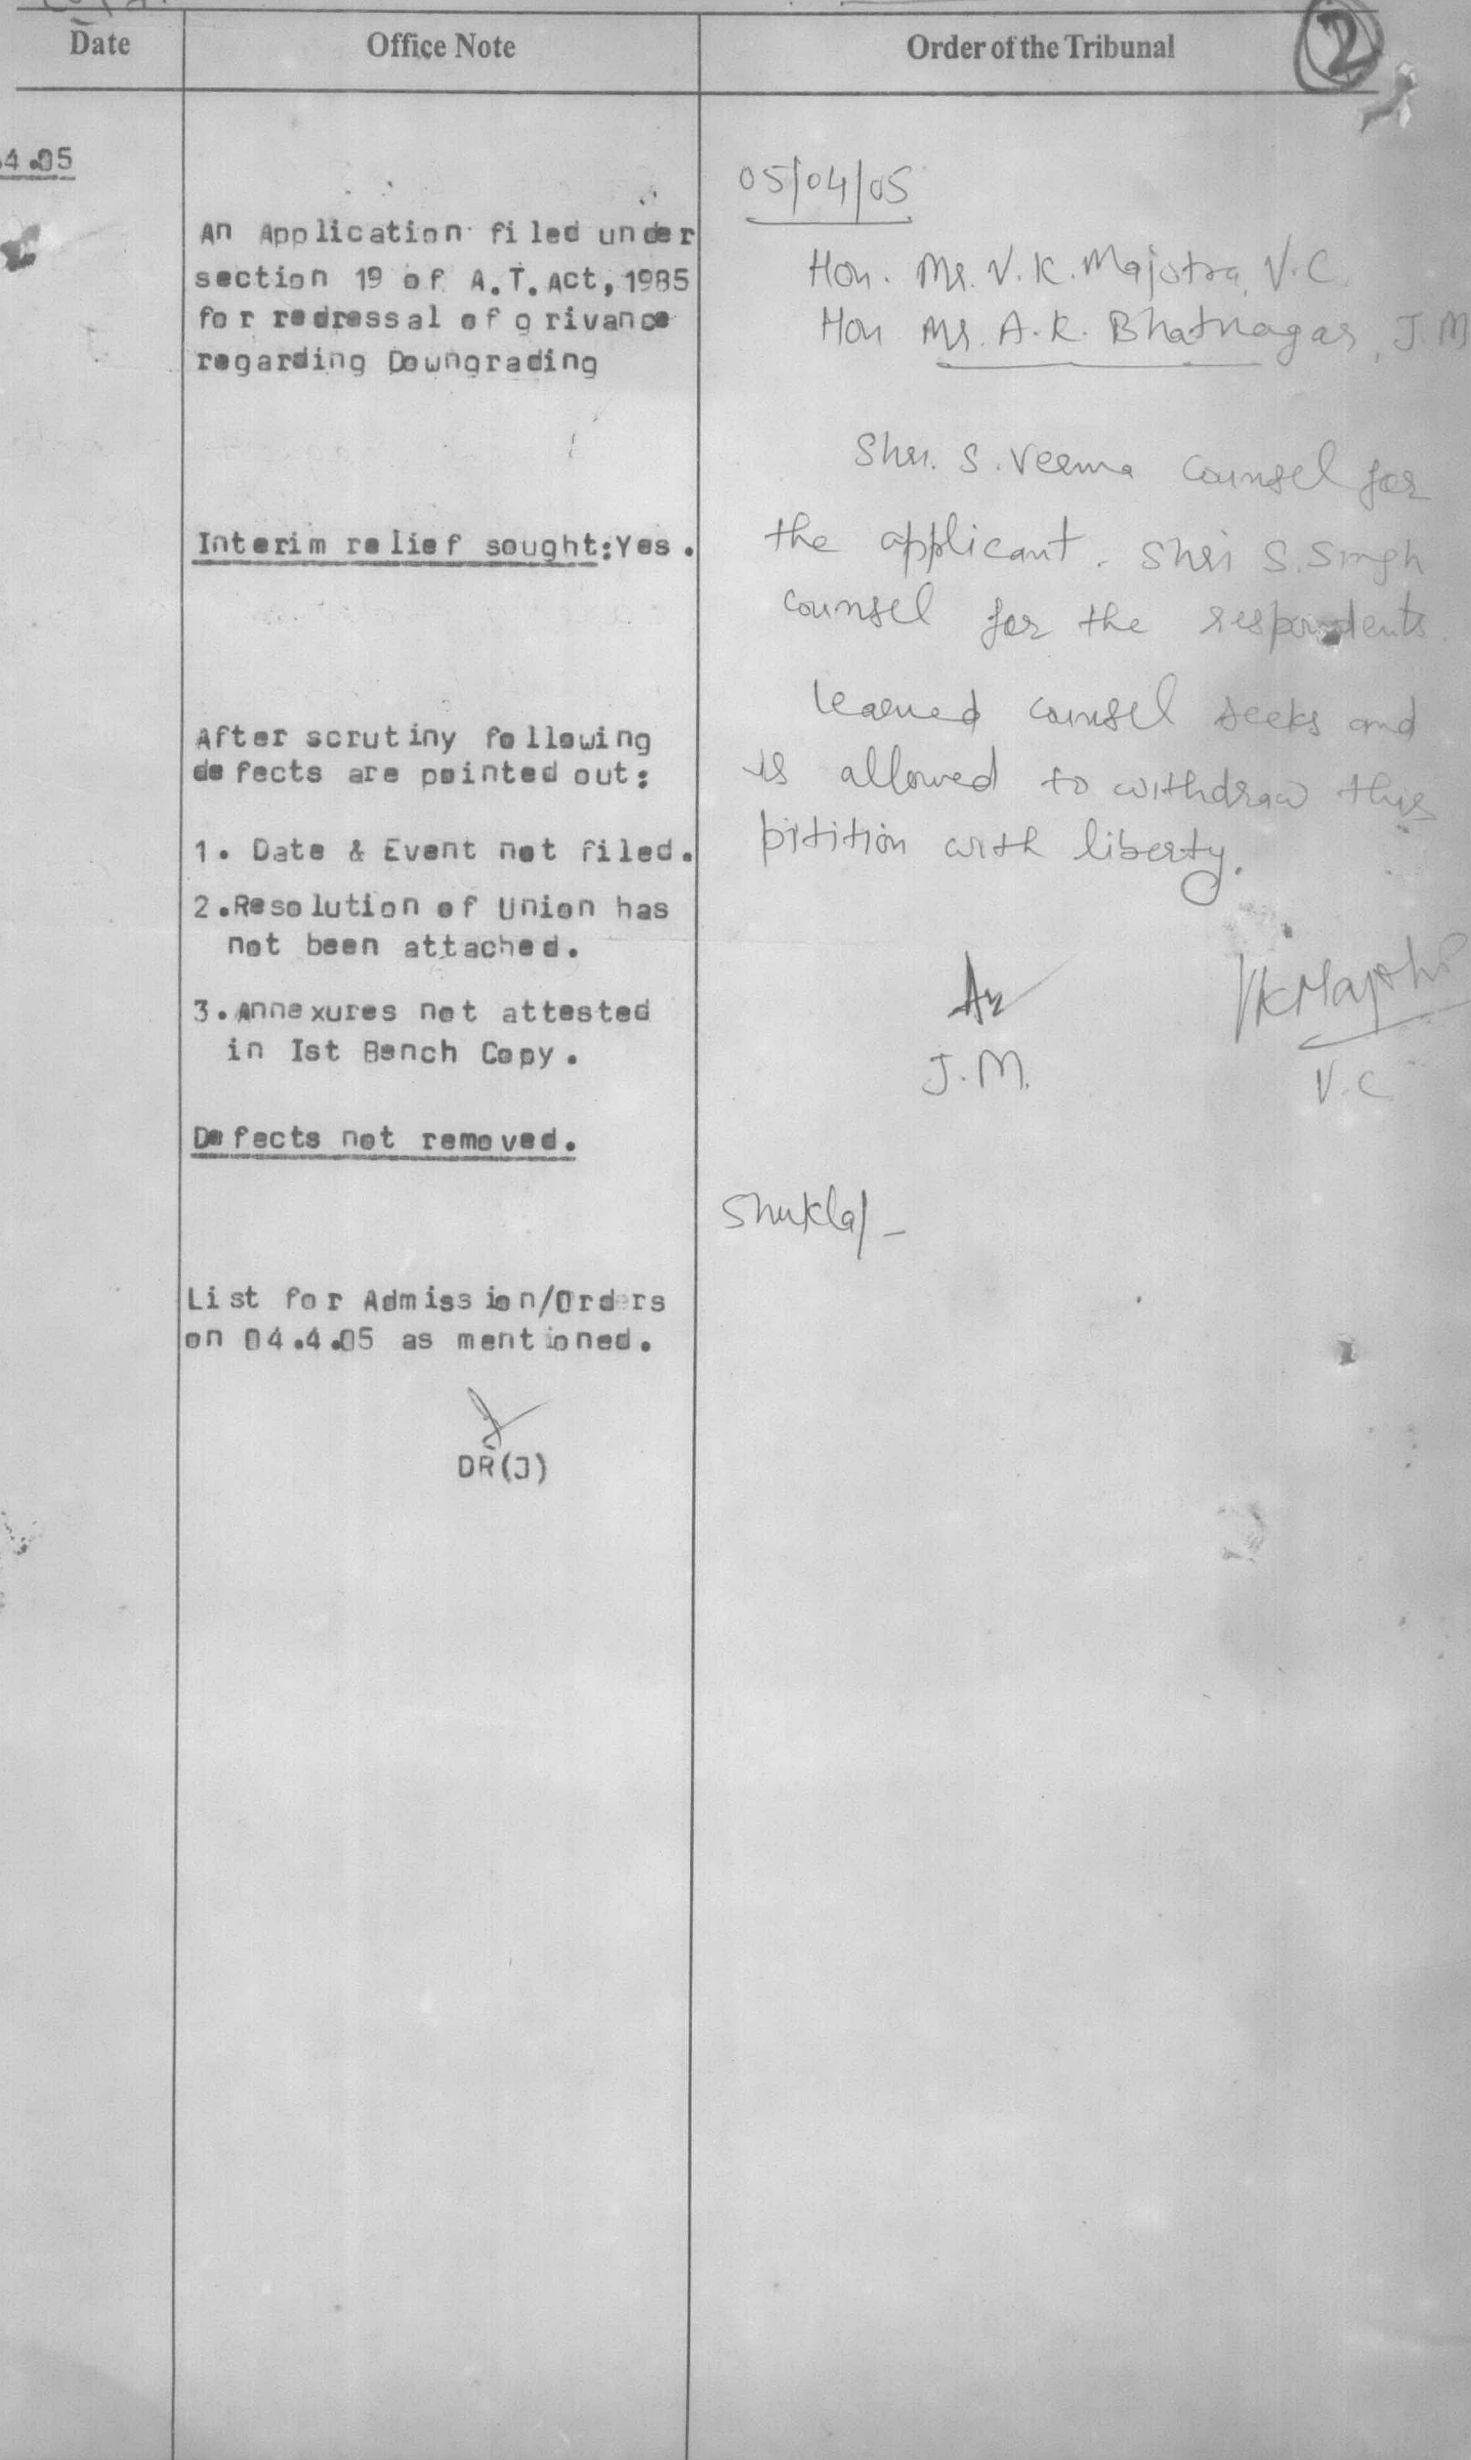 Date
Office Note
Order of the Tribunal
2
4.05
An Application filed under
section 19 of A.T.Act,1985
for redressal of grivance
regarding Downgrading
Interim relief sought:Yes.
After scrutiny following
defects are pointed out:
1. Date & Event not filed.
2.Resolution of Union has
not been attached.
3.Annexures not attested
in Ist Bench Copy.
Defects not removed.
List for Admission/Orders
on 04.4.05 as mentioned.
DR(J)
05/04/05
Hon. Mr. V.K. Majotra, V.C.
Hon Mr. A.K. Bhatnagar, J.M
Shri. S. Verma Counsel for
the applicant. Shri S. Singh
counsel for the respondents.
Learned counsel seeks and
is allowed to withdraw this
pitition with liberty.
J.M.
VKMajotra
V.C
Shukla/-